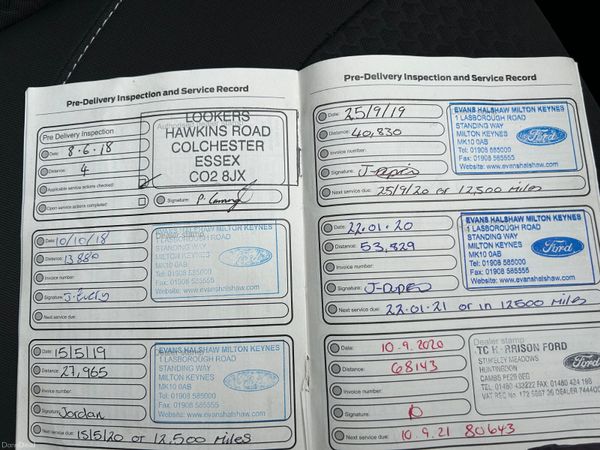 Pre-Delivery Inspection and Service Record
Pre Delivery Inspection
Date: 8.6.18
Distance: 4
Applicable service actions checked:
Open service actions completed:
LOOKERS
HAWKINS ROAD
COLCHESTER
ESSEX
CO2 8JX
Signature:
Date: 10/10/18
Distance: 13,880
Invoice number:
Signature:
Next service due:
Dealer stamp
EVANS HALSHAW MILTON KEYNES
1 LASBOROUGH ROAD
STANDING WAY
MILTON KEYNES
MK10 0AB
Tel: 01908 585000
Fax: 01908 585555
Website: www.evanshalshaw.com
Ford
Date: 15/5/19
Distance: 27,965
Invoice number:
Signature: Jordan
Next service due: 15/5/20 or 12,500 Miles
EVANS HALSHAW MILTON KEYNES
1 LASBOROUGH ROAD
STANDING WAY
MILTON KEYNES
MK10 0AB
Tel: 01908 585000
Fax: 01908 585555
Website: www.evanshalshaw.com
Ford
Pre-Delivery Inspection and Service Record
Date: 25/9/19
Distance: 40,830
Invoice number:
Signature:
Next service due: 25/9/20 or 12,500 Miles
EVANS HALSHAW MILTON KEYNES
1 LASBOROUGH ROAD
STANDING WAY
MILTON KEYNES
MK10 0AB
Tel: 01908 585000
Fax: 01908 585555
Website: www.evanshalshaw.com
Ford
Date: 22.01.20
Distance: 53,829
Invoice number:
Signature:
Next service due: 22.01.21 or in 12500 Miles
EVANS HALSHAW MILTON KEYNES
1 LASBOROUGH ROAD
STANDING WAY
MILTON KEYNES
MK10 0AB
Tel: 01908 585000
Fax: 01908 585555
Website: www.evanshalshaw.com
Ford
Date: 10.9.2020
Distance: 68143
Invoice number:
Signature:
Next service due: 10.9.21 80643
Dealer stamp
FORD
STUKELEY MEADOWS
HUNTINGDON
Ford